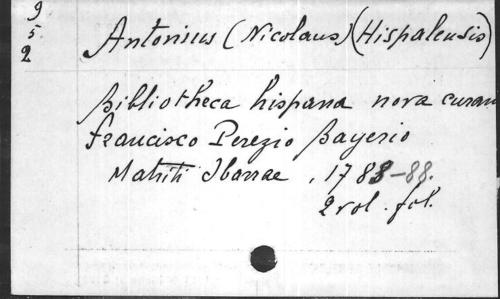 9
5
2
Antonius (Nicolaus) (Hispalensis)
Bibliotheca hispana nova curan
Francisco Perezio Bayerio
Matriti Ibarrae, 1783-88.
2 vol. fol.